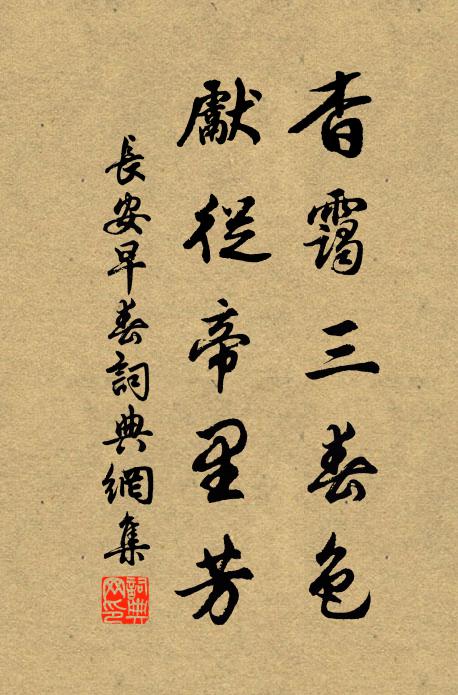 杳靄三春色
獻從帝里芳
長安早春詞典網集
詞典
网印